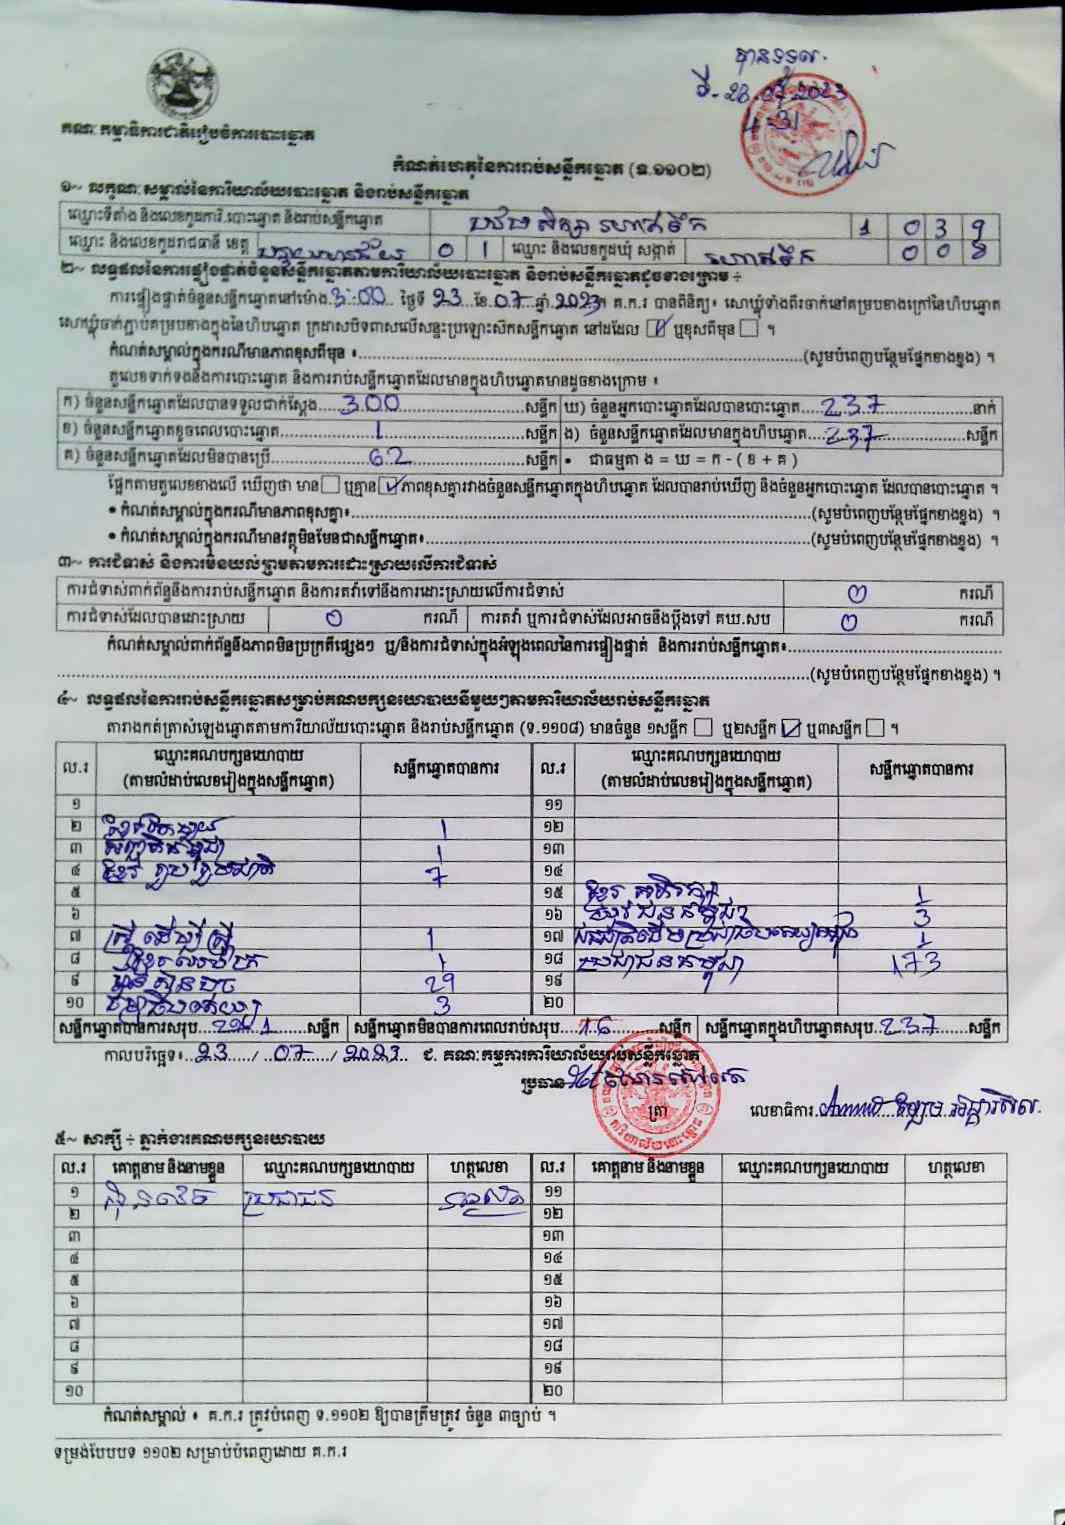 បានទទួល
ទី-23.07.2023
4-31
គណៈកម្មាធិការជាតិរៀបចំការបោះឆ្នោត
កំណត់ហេតុនៃការរាប់សន្លឹកឆ្នោត (ទ.១១០២)
១~ លក្ខណៈសម្គាល់នៃការិយាល័យបោះឆ្នោត និងរាប់សន្លឹកឆ្នោត
ឈ្មោះទីតាំង និងលេខកូដការិ.បោះឆ្នោត និងរាប់សន្លឹកឆ្នោត 1 0 3 9
ឈ្មោះ និងលេខកូដរាជធានី ខេត្ត បន្ទាយមានជ័យ 0 1 ឈ្មោះ និងលេខកូដឃុំ សង្កាត់ 0 0 8
២~ លទ្ធផលនៃការផ្ទៀងផ្ទាត់ចំនួនសន្លឹកឆ្នោតតាមការិយាល័យបោះឆ្នោត និងរាប់សន្លឹកឆ្នោតដូចខាងក្រោម ÷
ការផ្ទៀងផ្ទាត់ចំនួនសន្លឹកឆ្នោតនៅម៉ោង 3:00 ថ្ងៃទី 23 ខែ 07 ឆ្នាំ 2023។ គ.ក.រ បានពិនិត្យ៖ សោឃ្លុំទាំងពីរចាក់នៅគម្របខាងក្រៅនៃហិបឆ្នោត
សោឃ្លុំចាក់ភ្ជាប់គម្របខាងក្នុងនៃហិបឆ្នោត ក្រដាសបិទពាសលើសន្ទះប្រឡោះសឹកសន្លឹកឆ្នោត នៅដដែល ☑ ឬខុសពីមុន ☐ ។
កំណត់សម្គាល់ក្នុងករណីមានភាពខុសពីមុន ៖ (សូមបំពេញបន្ថែមផ្នែកខាងខ្នង) ។
តួលេខទាក់ទងនឹងការបោះឆ្នោត និងការរាប់សន្លឹកឆ្នោតដែលមានក្នុងហិបឆ្នោតមានដូចខាងក្រោម ៖
ក) ចំនួនសន្លឹកឆ្នោតដែលបានទទួលជាក់ស្តែង 300 សន្លឹក ឃ) ចំនួនអ្នកបោះឆ្នោតដែលបានបោះឆ្នោត 237 នាក់
ខ) ចំនួនសន្លឹកឆ្នោតខូចពេលបោះឆ្នោត 1 សន្លឹក ង) ចំនួនសន្លឹកឆ្នោតដែលមានក្នុងហិបឆ្នោត 237 សន្លឹក
គ) ចំនួនសន្លឹកឆ្នោតដែលមិនបានប្រើ 62 សន្លឹក • ជាធម្មតា ង = ឃ = ក - ( ខ + គ )
ផ្អែកតាមតួលេខខាងលើ ឃើញថា មាន ☐ ឬគ្មាន ☑ ភាពខុសគ្នារវាងចំនួនសន្លឹកឆ្នោតក្នុងហិបឆ្នោត ដែលបានរាប់ឃើញ និងចំនួនអ្នកបោះឆ្នោត ដែលបានបោះឆ្នោត ។
• កំណត់សម្គាល់ក្នុងករណីមានភាពខុសគ្នា៖ (សូមបំពេញបន្ថែមផ្នែកខាងខ្នង) ។
• កំណត់សម្គាល់ក្នុងករណីមានវត្ថុមិនមែនជាសន្លឹកឆ្នោត៖ (សូមបំពេញបន្ថែមផ្នែកខាងខ្នង) ។
៣~ ការជំទាស់ និងការមិនយល់ព្រមតាមការដោះស្រាយលើការជំទាស់
ការជំទាស់ពាក់ព័ន្ធនឹងការរាប់សន្លឹកឆ្នោត និងការតវ៉ាទៅនឹងការដោះស្រាយលើការជំទាស់ 0 ករណី
ការជំទាស់ដែលបានដោះស្រាយ 0 ករណី ការតវ៉ា ឬការជំទាស់ដែលអាចនឹងប្តឹងទៅ គឃ.សប 0 ករណី
កំណត់សម្គាល់ពាក់ព័ន្ធនឹងភាពមិនប្រក្រតីផ្សេងៗ ឬ/និងការជំទាស់ក្នុងអំឡុងពេលនៃការផ្ទៀងផ្ទាត់ និងការរាប់សន្លឹកឆ្នោត៖
(សូមបំពេញបន្ថែមផ្នែកខាងខ្នង) ។
៤~ លទ្ធផលនៃការរាប់សន្លឹកឆ្នោតសម្រាប់គណបក្សនយោបាយនីមួយៗតាមការិយាល័យរាប់សន្លឹកឆ្នោត
តារាងកត់ត្រាសំឡេងឆ្នោតតាមការិយាល័យបោះឆ្នោត និងរាប់សន្លឹកឆ្នោត (ទ.១១០៨) មានចំនួន ១សន្លឹក ☐ ឬ២សន្លឹក ☑ ឬ៣សន្លឹក ☐ ។
ល.រ ឈ្មោះគណបក្សនយោបាយ (តាមលំដាប់លេខរៀងក្នុងសន្លឹកឆ្នោត) សន្លឹកឆ្នោតបានការ ល.រ ឈ្មោះគណបក្សនយោបាយ (តាមលំដាប់លេខរៀងក្នុងសន្លឹកឆ្នោត) សន្លឹកឆ្នោតបានការ
១ ១១
២ 1 ១២
៣ 1 ១៣
៤ ខ្មែរ រួបរួមជាតិ 7 ១៤
៥ ១៥ ខ្មែរ 1
៦ ១៦ 3
៧ 1 ១៧ 1
៨ 1 ១៨ ប្រជាជនកម្ពុជា 173
៩ 29 ១៩
១០ 3 ២០
សន្លឹកឆ្នោតបានការសរុប 221 សន្លឹក សន្លឹកឆ្នោតមិនបានការពេលរាប់សរុប 16 សន្លឹក សន្លឹកឆ្នោតក្នុងហិបឆ្នោតសរុប 237 សន្លឹក
កាលបរិច្ឆេទ៖ 23 / 07 / 2023 ជ. គណៈកម្មការការិយាល័យរាប់សន្លឹកឆ្នោត
ប្រធាន
ត្រា លេខាធិការ
៥~ សាក្សី ÷ ភ្នាក់ងារគណបក្សនយោបាយ
ល.រ គោត្តនាម និងនាមខ្លួន ឈ្មោះគណបក្សនយោបាយ ហត្ថលេខា ល.រ គោត្តនាម និងនាមខ្លួន ឈ្មោះគណបក្សនយោបាយ ហត្ថលេខា
១ ប្រជាជន ១១
២ ១២
៣ ១៣
៤ ១៤
៥ ១៥
៦ ១៦
៧ ១៧
៨ ១៨
៩ ១៩
១០ ២០
កំណត់សម្គាល់ ៖ គ.ក.រ ត្រូវបំពេញ ទ.១១០២ ឱ្យបានត្រឹមត្រូវ ចំនួន ៣ច្បាប់ ។
ទម្រង់បែបបទ ១១០២ សម្រាប់បំពេញដោយ គ.ក.រ